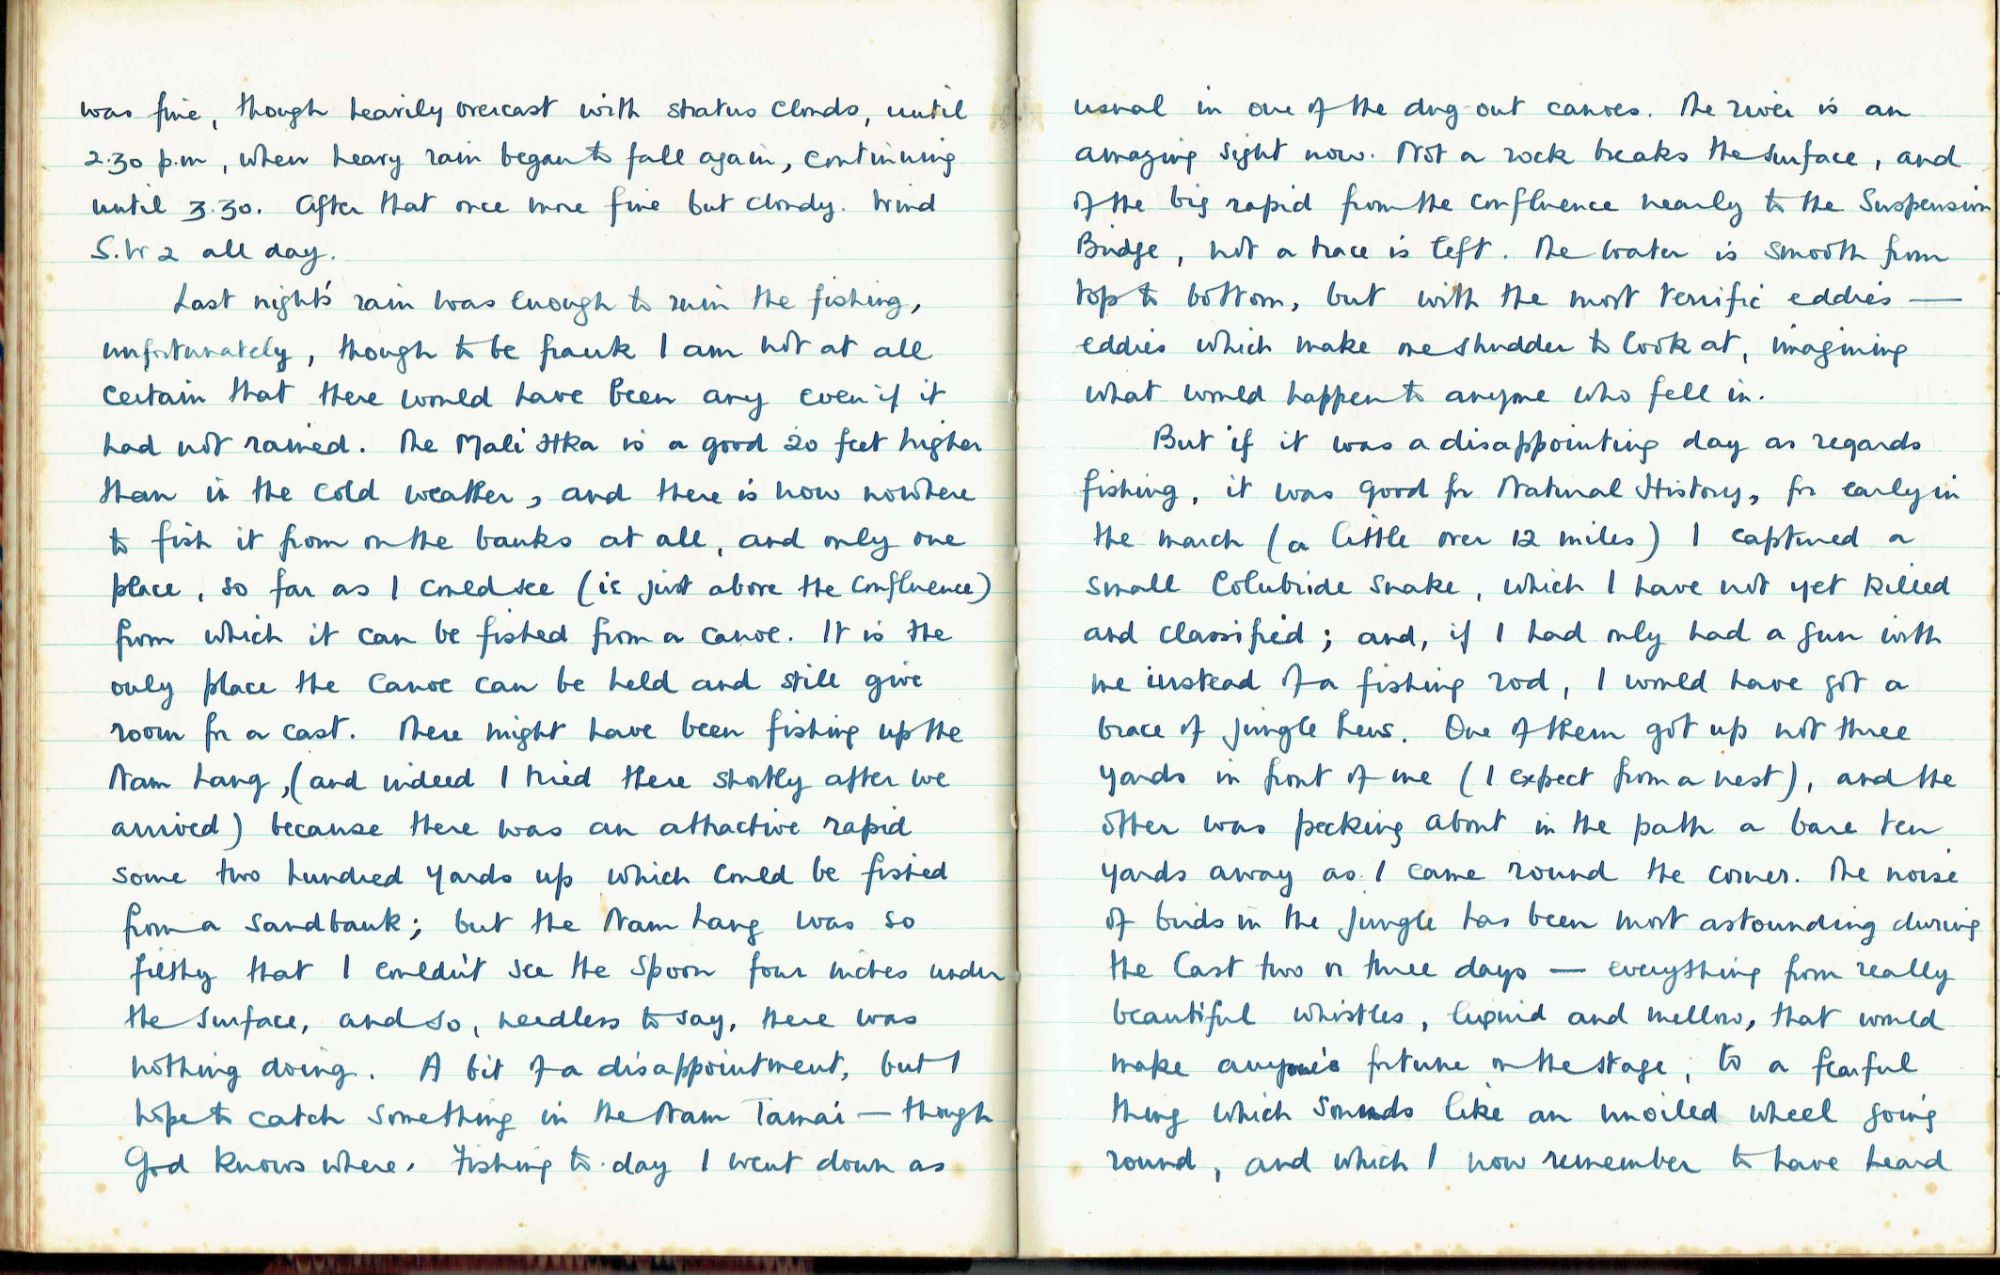 was fine, though heavily overcast with stratus clouds, until
2.30 p.m, when heavy rain began to fall again, continuing
until 3.30. After that once more fine but cloudy. Wind
S.W 2 all day.
Last night's rain was enough to ruin the fishing,
unfortunately, though to be frank I am not at all
certain that there would have been any even if it
had not rained. The Mali Hka is a good 20 feet higher
than in the cold weather, and there is now nowhere
to fish it from on the banks at all, and only one
place, so far as I could see (ie just above the confluence)
from which it can be fished from a canoe. It is the
only place the canoe can be held and still give
room for a cast. There might have been fishing up the
Nam Lang, (and indeed I tried there shortly after we
arrived) because there was an attractive rapid
some two hundred yards up which could be fished
from a sandbank; but the Nam Lang was so
filthy that I couldn't see the spoon four inches under
the surface, and so, needless to say, there was
nothing doing. A bit of a disappointment, but I
hope to catch something in the Nam Tamai — though
God knows where. Fishing to-day I went down as
usual in one of the dug-out canoes. The river is an
amazing sight now. Not a rock breaks the surface, and
of the big rapid from the confluence nearly to the Suspension
Bridge, not a trace is left. The water is smooth from
top to bottom, but with the most terrific eddies —
eddies which make one shudder to look at, imagining
what would happen to anyone who fell in.
But if it was a disappointing day as regards
fishing, it was good for Natural History, for early in
the march (a little over 12 miles) I captured a
small Colubride snake, which I have not yet killed
and classified; and, if I had only had a gun with
me instead of a fishing rod, I would have got a
brace of jungle hens. One of them got up not three
yards in front of me (I expect from a nest), and the
other was pecking about in the path a bare ten
yards away as I came round the corner. The noise
of birds in the jungle has been most astounding during
the last two or three days — everything from really
beautiful whistles, liquid and mellow, that would
make anyone's fortune on the stage, to a fearful
thing which sounds like an unoiled wheel going
round, and which I now remember to have heard